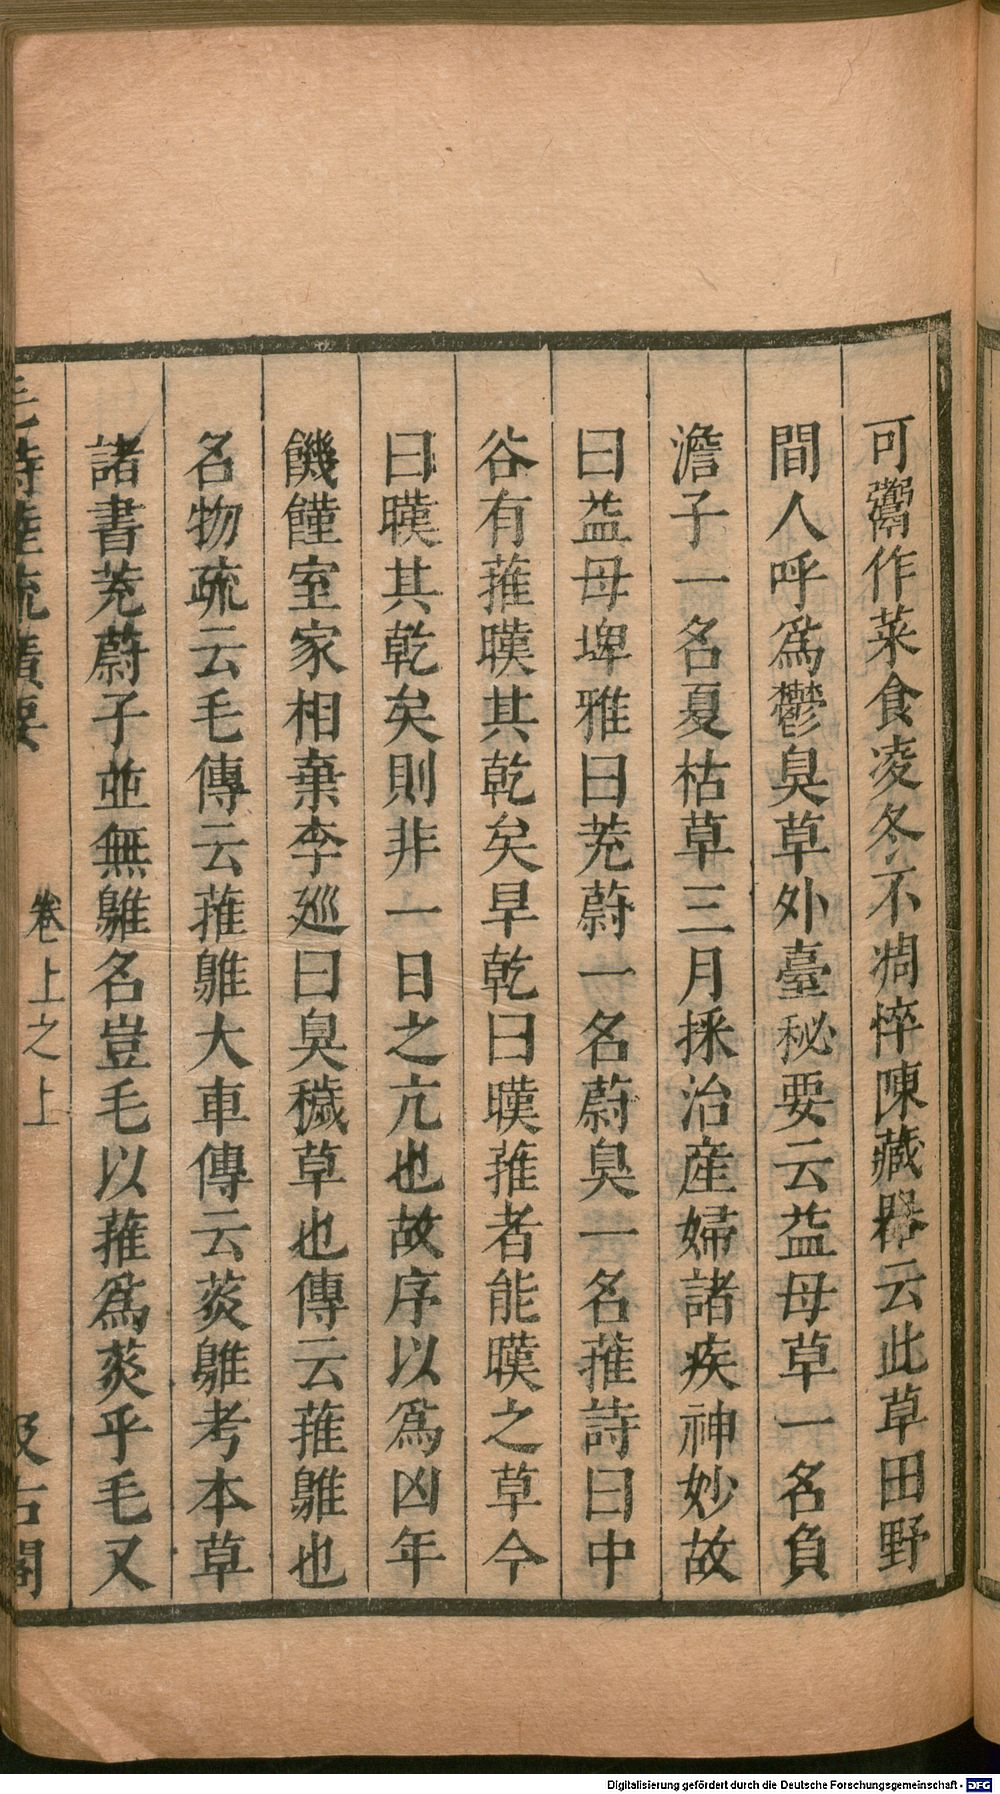 可鬻作菜食凌冬不凋悴陳藏器云此草田野
間人呼爲鬱臭草外臺秘要云益母草一名負
澹子一名夏枯草三月採治産婦諸疾神妙故
曰益母埤雅曰茺蔚一名蔚臭一名蓷詩曰中
谷有蓷暵其乾矣旱乾曰暵蓷者能暵之草今
曰暵其乾矣則非一日之亢也故序以爲凶年
饑饉室家相棄李廵曰臭穢草也傳云蓷鵻也
名物疏云毛傳云蓷鵻大車傳云菼鵻考本草
諸書茺蔚子並無鵻名豈毛以蓷爲菼乎毛又
毛詩陸疏廣要 卷上之上 汲古閣
Digitalisierung gefördert durch die Deutsche Forschungsgemeinschaft - DFG